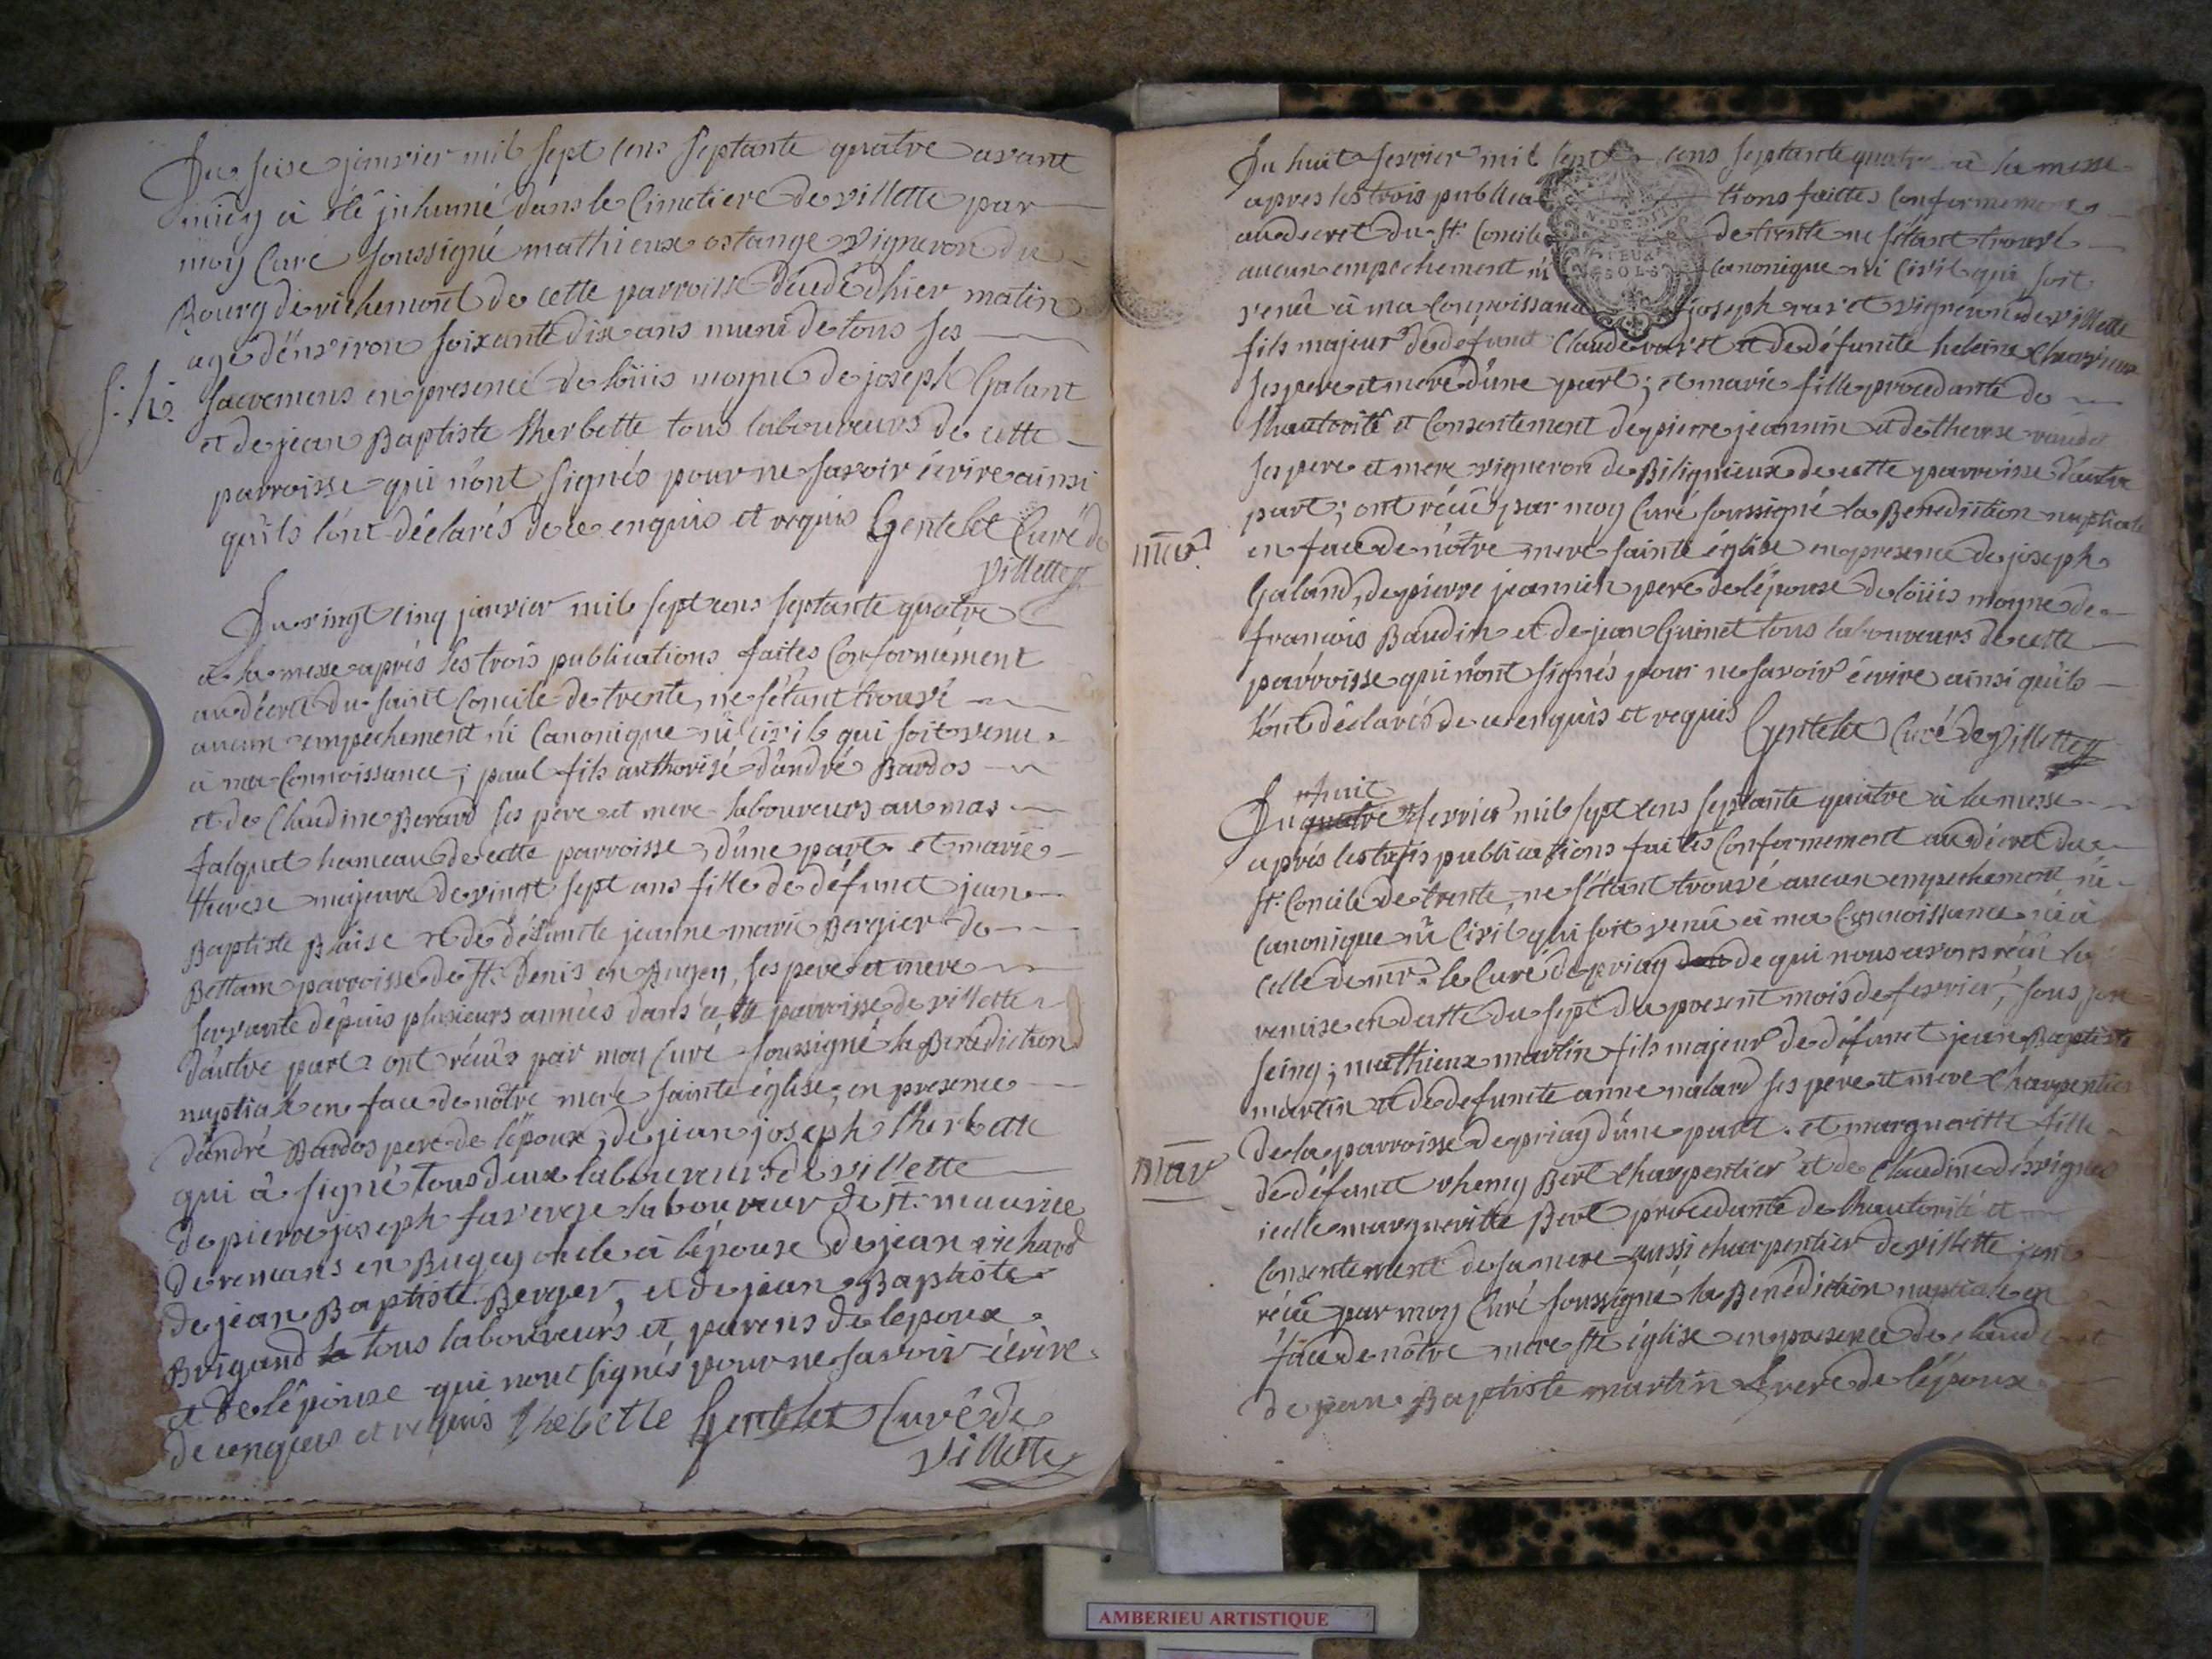 Du seise janvier mil sept cens septante quatre avant
midy à été inhumé dans le Cimetiere de villette par
moy Curé soussigné mathieux ostange vigneron du
Bourg de richemont de cette parroisse décédé d'hier matin
agé d'environ soixante dix ans muni de tous ses
S: h:
sacremens en presence de loüis moyne de joseph Galant
et de jean Baptiste Therbette tous laboureurs de cette
parroisse qui n'ont signés pour ne savoir écrire ainsi
qu'ils l'ont déclarés de ce enquis et requis Gentelet Curé de
villette
Du vingt cinq janvier mil sept cens septante quatre
à la messe après les trois publications faites Conformément
au décret du saint Concile de trente, ne s'étant trouvé
aucun empechement ni Canonique ni civil qui soit venu
à ma Connoissance; paul fils authorisé d'andré Bardos
et de Claudine Berard ses pere et mere laboureurs au mas
falquet hameau de cette parroisse, d'une part. et marie
therese majeure de vingt sept ans fille de défunct jean
Baptiste Blaise et de défuncte jeanne marie Bergier de
Bettam parroisse de St. Denis en Bugey, ses pere et mere
servante depuis plusieurs années dans cette parroisse de villette
d'autre part. ont réçûs par moy Curé soussigné la Bénédiction
nuptiale en face de nôtre mere sainte église, en presence
d'andré Bardos pere de l'époux, de jean joseph therbette
qui à signé tous deux laboureurs de villette
de pierre joseph faverge laboureur de St. maurice
de remans en Bugey oncle à l'épouse de jean richard
de jean Baptiste Berger, et de jean Baptiste
Brigand tous laboureurs et parens de l'epoux
et de l'épouse qui n'ont signés pour ne savoir écrire
de ce enquis et requis therbette Gentelet Curé de
villette
Du huit fevrier mil sept cens septante quatre à la messe
apres les trois publications faittes Conformement
au decret du St. Concile de trente ne s'étant trouvé
aucun empechement ni canonique ni Civil qui soit
venû à ma Connoissance joseph ravet vigneron de villette
fils majeur de défunct Claude ravet et de défuncte heleine
ses pere et mere d'une part; et marie fille procedante de
l'hautorité et Consentement de pierre jeannin et de therese
ses pere et mere vigneron de Bilignieux de cette parroisse d'autre
part; ont réçû par moy Curé soussigné la Benediction nuptiale
mar.
en face de nôtre mere sainte église en presence de joseph
Galand, de pierre jeannin pere de l'épouse de loüis moyne de
francois Baudin et de jean Guinet tous laboureurs de cette
parroisse qui n'ont signés pour ne savoir écrire ainsi qu'ils
l'ont déclarés de ce enquis et requis Gentelet Curé de villette
huit
Du quatre fevrier mil sept cens septante quatre à la messe
après les trois publications faites Conformement au décret du
St. Concile de trente, ne s'étant trouvé aucun empechement ni
Canonique ni Civil qui soit venû à ma Connoissance ni à
celle de mr. le Curé de priay de qui nous avons réçû la
remise en datte du sept du present mois de fevrier, sous son
seing; mathieux martin fils majeur de défunct jean Baptiste
martin et de defuncte anne nalard ses pere et mere charpentier
de la parroisse de priay d'une part. et margueritte fille
mar
de défunct rhemy Bert charpentier et de Claudine désvignes
icelle margueritte Bert procedante de l'hautorité et
Consentement de sa mere aussi charpentier de villette; ont
réçû par moy Curé soussigné la Bénédiction nuptiale en
face de nôtre mere ste église en presence de claude
de jean Baptiste martin frere de l'époux
NS DEUX SOLS
AMBERIEU ARTISTIQUE